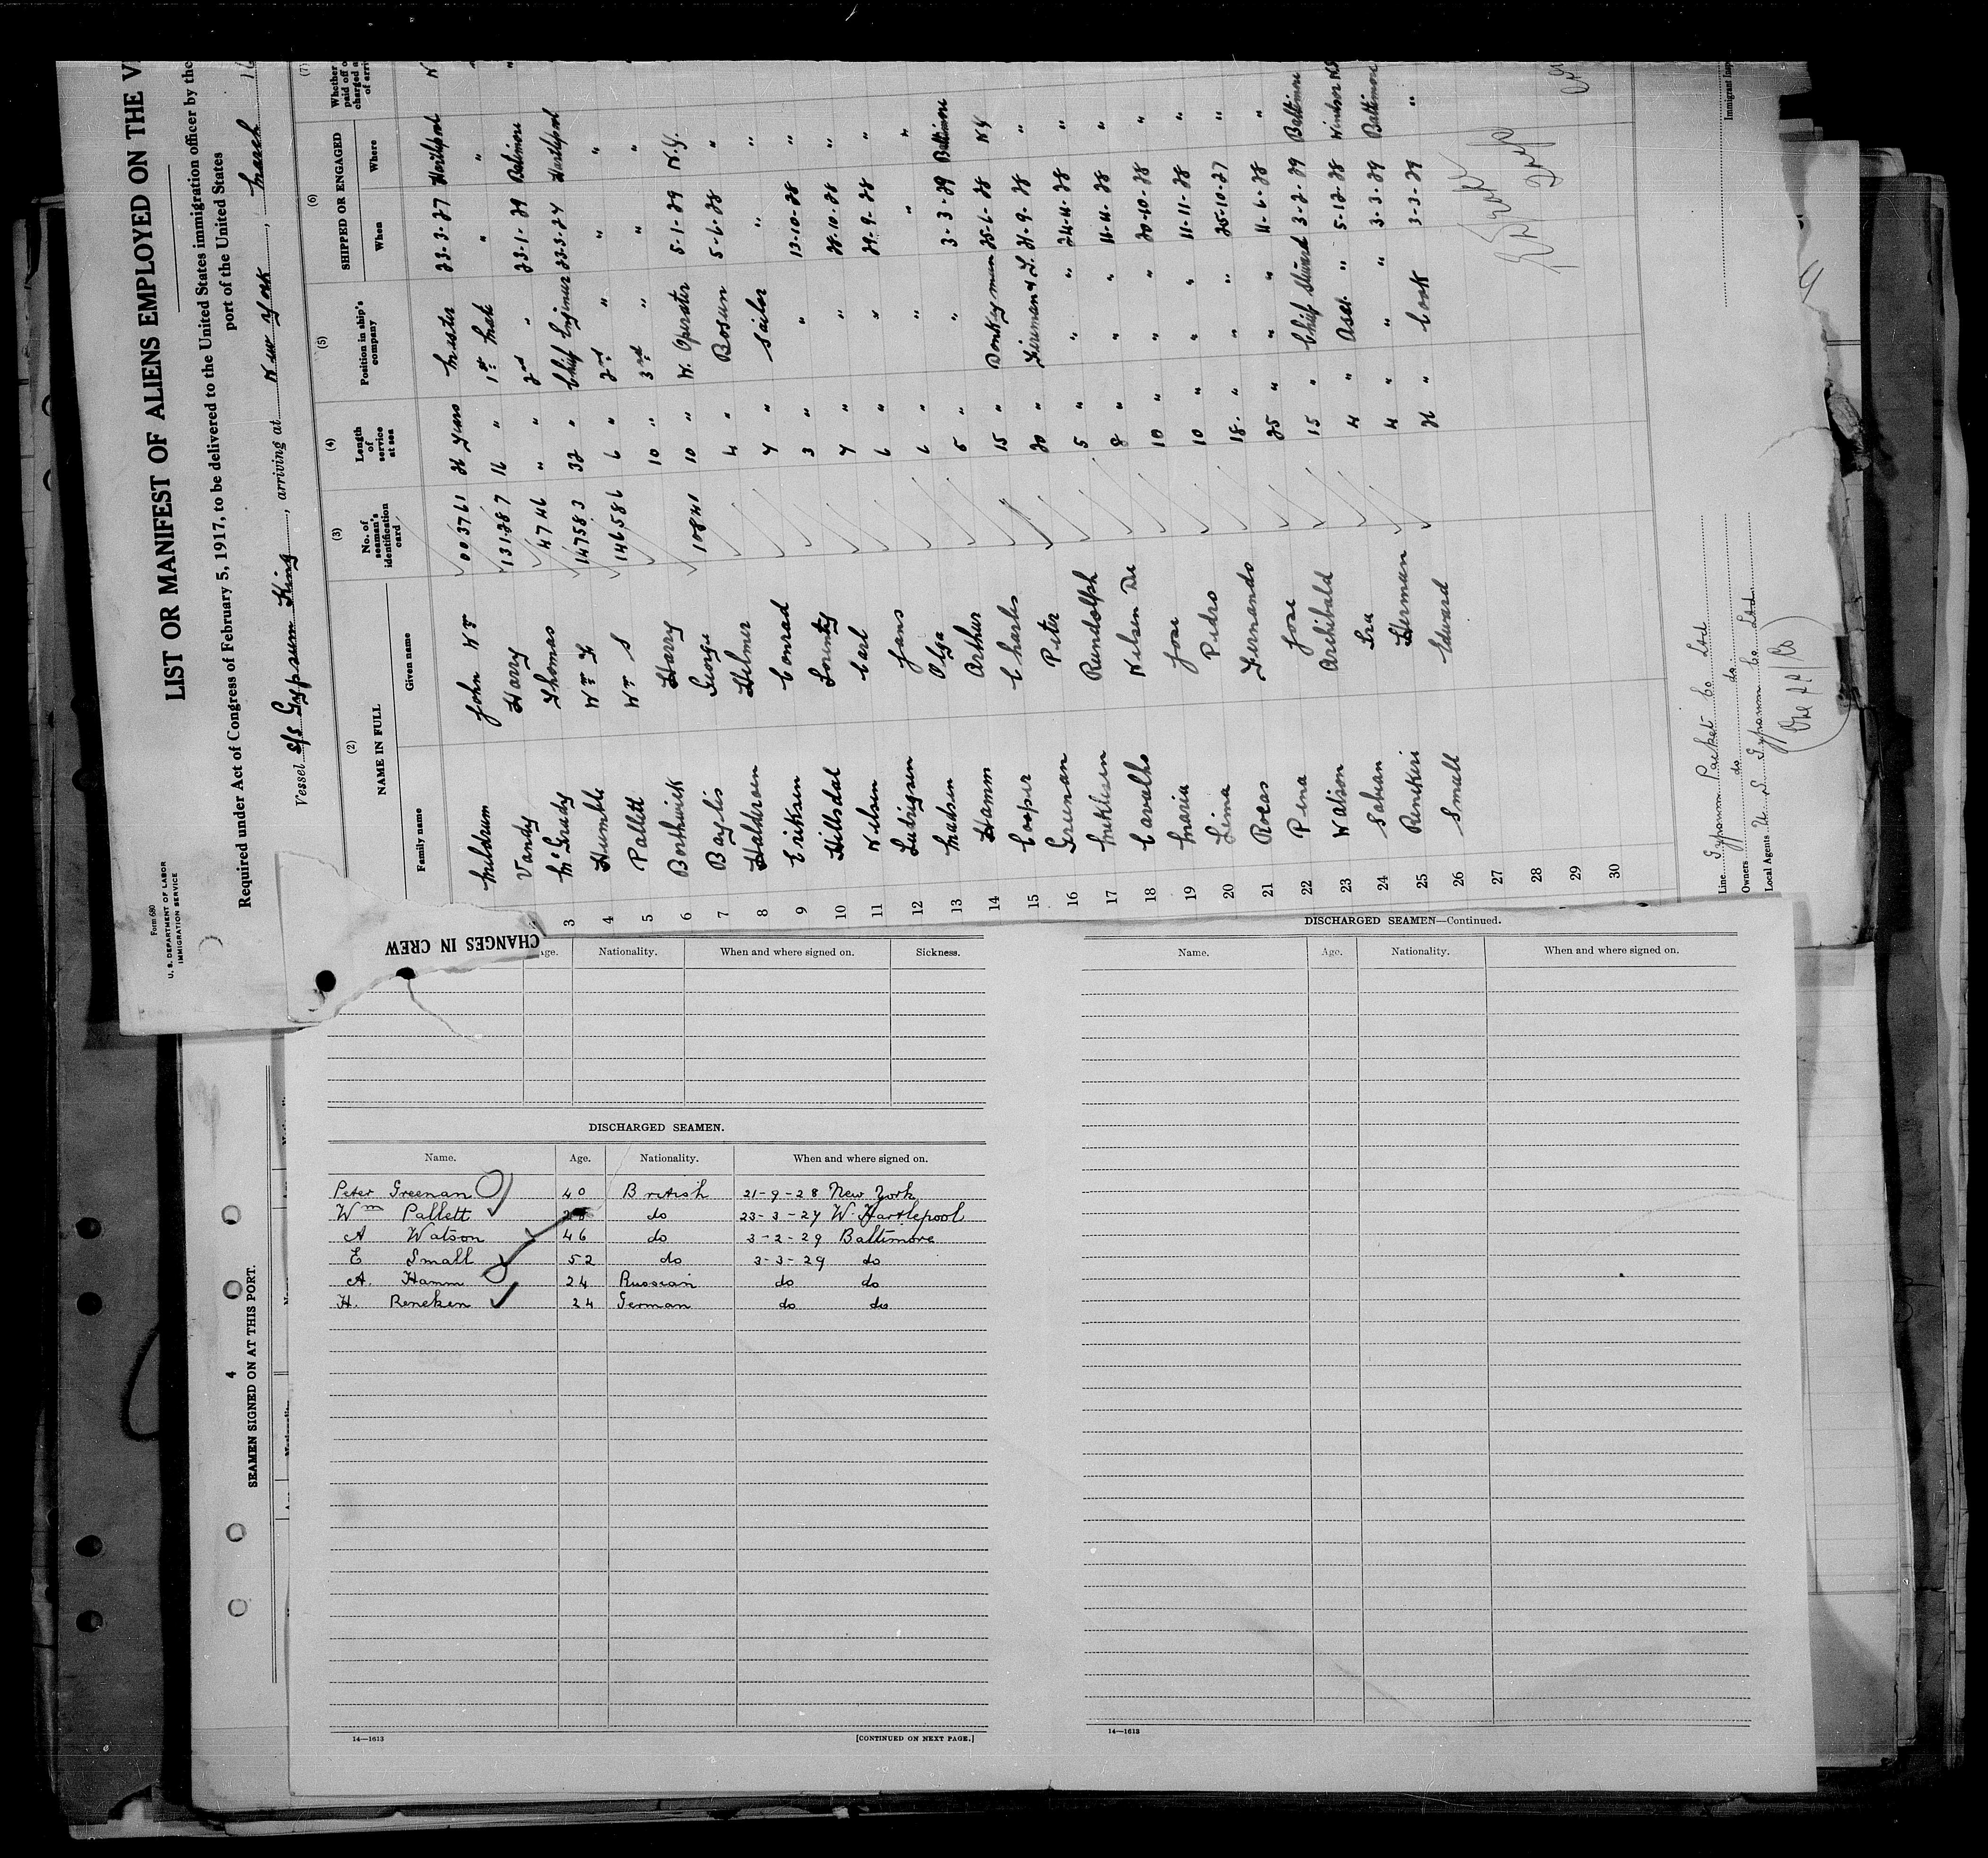 Form 680
U. S. DEPARTMENT OF LABOR
IMMIGRATION SERVICE
LIST OR MANIFEST OF ALIENS EMPLOYED ON THE
Required under Act of Congress of February 5, 1917, to be delivered to the United States immigration officer by the
port of the United States
Vessel S/S Gypsum King, arriving at New York, March 16
(2) (3) (4) (5) (6) (7)
NAME IN FULL No. of seaman's identification card Length of service at sea Position in ship's company SHIPPED OR ENGAGED Whether
paid off
Family name Given name When Where
Meldrum John Wm 003761 26 Years Master 23-3-27 Hartlepool
Vandy Harry 131287 16 " 1st Mate " "
3 McGrady Thomas 4746 " " 2nd " 23-1-29 Baltimore
4 Humble Wm 147583 32 " Chief Engineer 23-3-27 Hartlepool
5 Pallett Wm S 146586 6 " 2nd " " "
6 Borthwick Harry 10 " 3rd " " "
7 Baylis George 10841 10 " W. Operator 5-1-29 N.Y.
8 Haldorsen Helmer 4 " Bosun 5-6-28 "
9 Eriksen Conrad 7 " Sailor " "
10 Hillsdal Lorentz 3 " " 13-10-28 "
11 Nelsen Carl 7 " " 28-10-28 "
12 Ludvigsen Hans 6 " " 29-9-28 "
13 Madsen Olga 6 " " " "
14 Hamm Arthur 5 " " 3-3-29 Baltimore
15 Cooper Charles 15 " Donkeyman 25-6-28 NY
16 Greenan Peter 20 " Fireman & T. 21-9-28 "
17 Mikklesen Rundolph 5 " " 24-11-28 "
18 Carvalho Nelson De 8 " " 16-11-28 "
19 Maria Jose 10 " " 20-10-28 "
20 Lima Pedro 10 " " 11-11-28 "
21 Rocas Fernando 18 " " 25-10-27 "
22 Pena Jose 25 " " 11-6-28 "
23 Watson Archibald 15 " Chief Steward 3-2-29 Baltimore
24 Saban Ira 4 " Asst. " 5-12-28 Windsor NS
25 Renekeri Herman 4 " " " 3-3-29 Baltimore
26 Small Edward 21 " Cook 3-3-29 "
27
28
29
30
Line Gypsum Packet Co Ltd
Owners do do
Local Agents U. S. Gypsum Co Ltd.
Immigrant Insp
CHANGES IN CREW
Age. Nationality. When and where signed on. Sickness.
DISCHARGED SEAMEN.
Name. Age. Nationality. When and where signed on.
Peter Greenan 40 British 21-9-28 New York
Wm Pallett do 23-3-27 W. Hartlepool
A Watson 46 do 3-2-29 Baltimore
E Small 52 do 3-3-29 do
A. Hamm 24 Russian do do
H. Reneken 24 German do do
14—1613 [CONTINUED ON NEXT PAGE.]
DISCHARGED SEAMEN—Continued.
Name. Age. Nationality. When and where signed on.
14—1613
4
SEAMEN SIGNED ON AT THIS PORT.